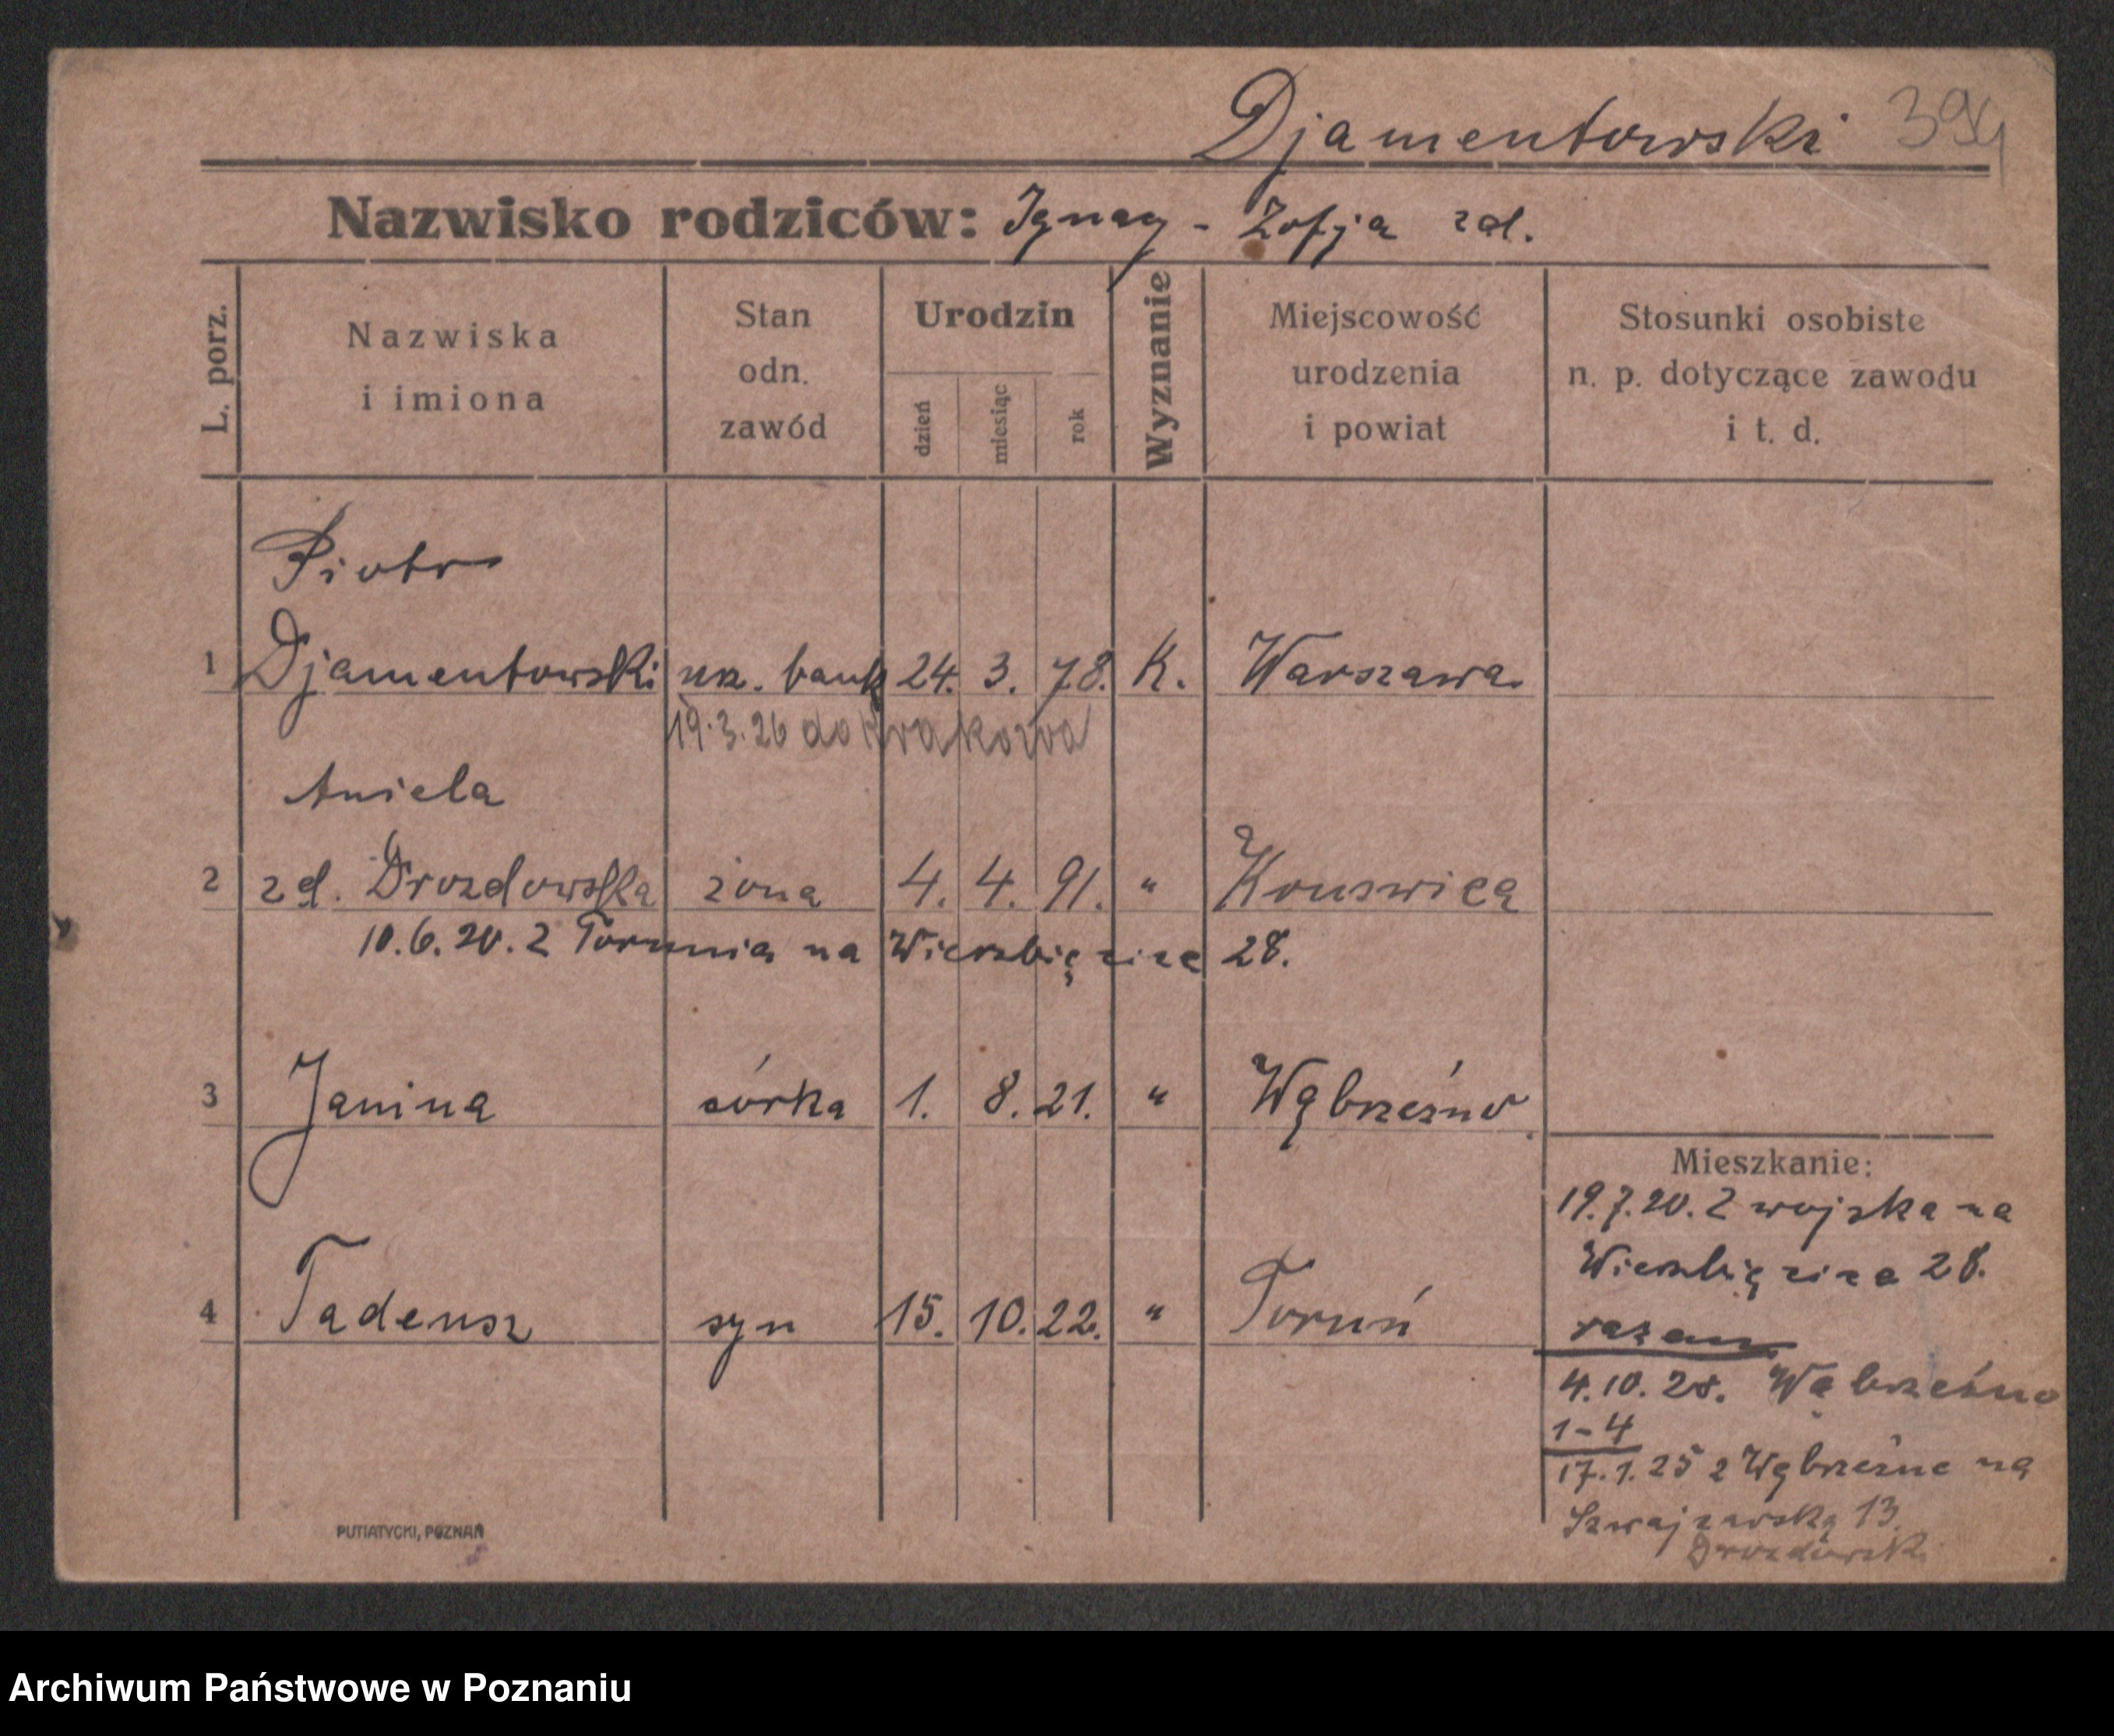 Djamentowski 394
Nazwisko rodziców: Ignacy - Zofja zd.
L. porz.
Nazwiska
i imiona
Stan
odn.
zawód
Urodzin
dzień
miesiąc
rok
Wyznanie
Miejscowość
urodzenia
i powiat
Stosunki osobiste
n. p. dotyczące zawodu
i t. d.
Piotr
1 Djamentowski urz. bank 24. 3. 78. K. Warszawa
19.3.26 do Krakowa
Aniela
2 zd. Drozdowska żona 4. 4. 91. "
10.6.20. z Torunia na Wierzbięcice 28.
3 Janina córka 1. 8. 21. " Wąbrzeźno
4 Tadeusz syn 15. 10. 22. " Toruń
Mieszkanie:
19.7.20. z wojska na
Wierzbięcice 28.
razem
4.10.20. Wąbrzeźno
1-4
17.1.25 z Wąbrzeźna na
Szwajcarską 13
Drozdowski
PUTIATYCKI, POZNAŃ
Archiwum Państwowe w Poznaniu